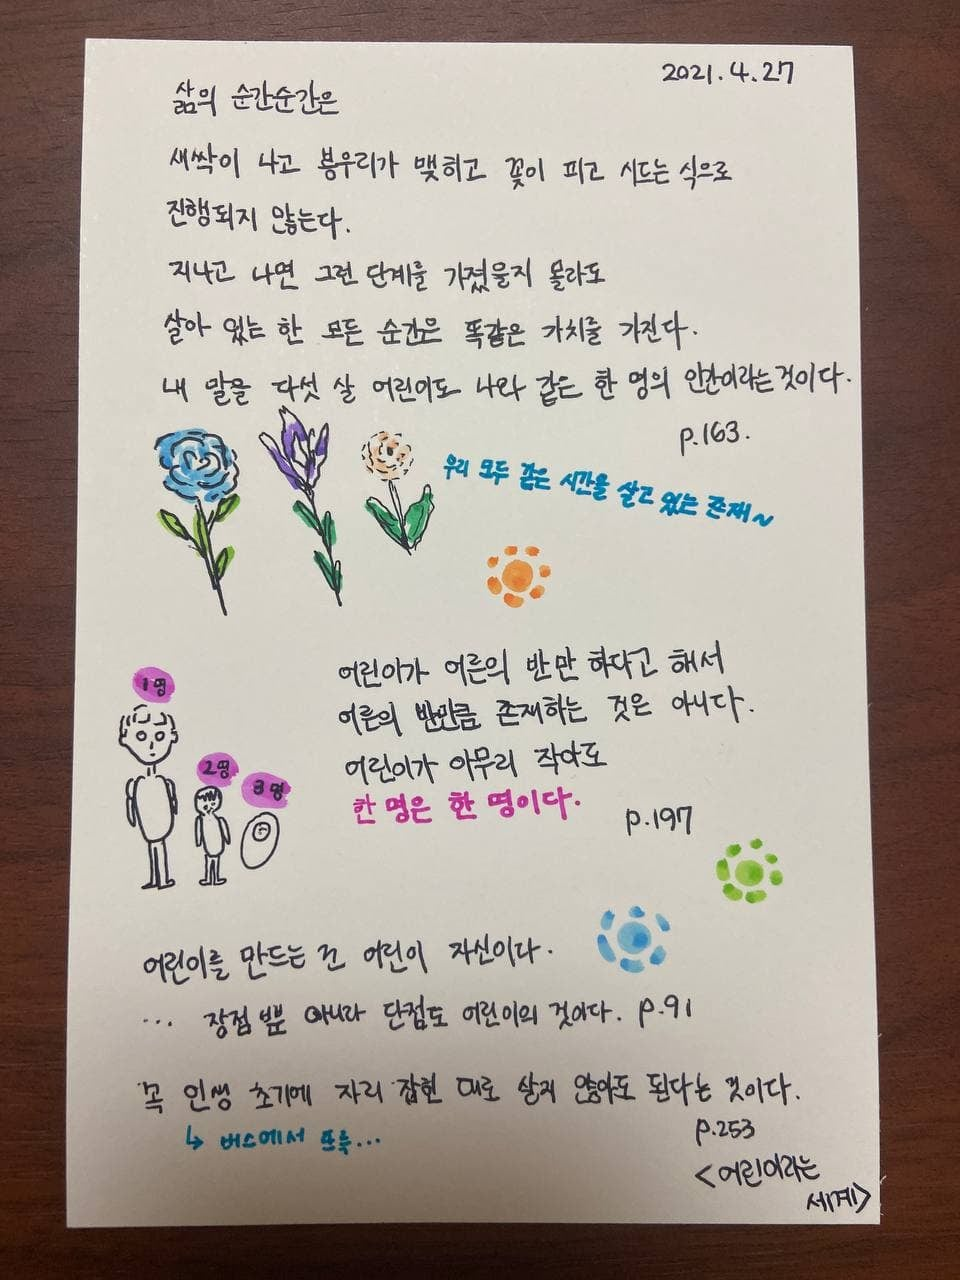 2021.4.27
삶의 순간순간은
새싹이 나고 봉우리가 맺히고 꽃이 피고 시드는 식으로
진행되지 않는다.
지나고 나면 그런 단계를 가졌을지 몰라도
살아 있는 한 모든 순간은 똑같은 가치를 가진다.
내 말은 다섯 살 어린이도 나와 같은 한 명의 인간이라는 것이다.
p.163.
우리 모두 같은 시간을 살고 있는 존재~
어린이가 어른의 반만 하다고 해서
어른의 반만큼 존재하는 것은 아니다.
어린이가 아무리 작아도
한 명은 한 명이다.
p.197
1명
2명
3명
어린이를 만드는 건 어린이 자신이다.
... 장점 뿐 아니라 단점도 어린이의 것이다. p.91
꼭 인생 초기에 자리 잡힌 대로 살지 않아도 된다는 것이다.
p.253
↳ 버스에서 또륵...
<어린이라는
세계>